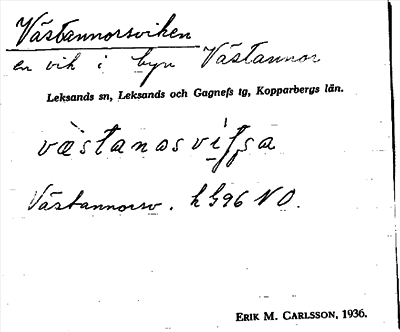 Västannorsviken
en vik i byn Västannor
Leksands sn, Leksands och Gagnefs tg, Kopparbergs län.
Västannorsv. h 596 NO.
ERIK M. CARLSSON, 1936.